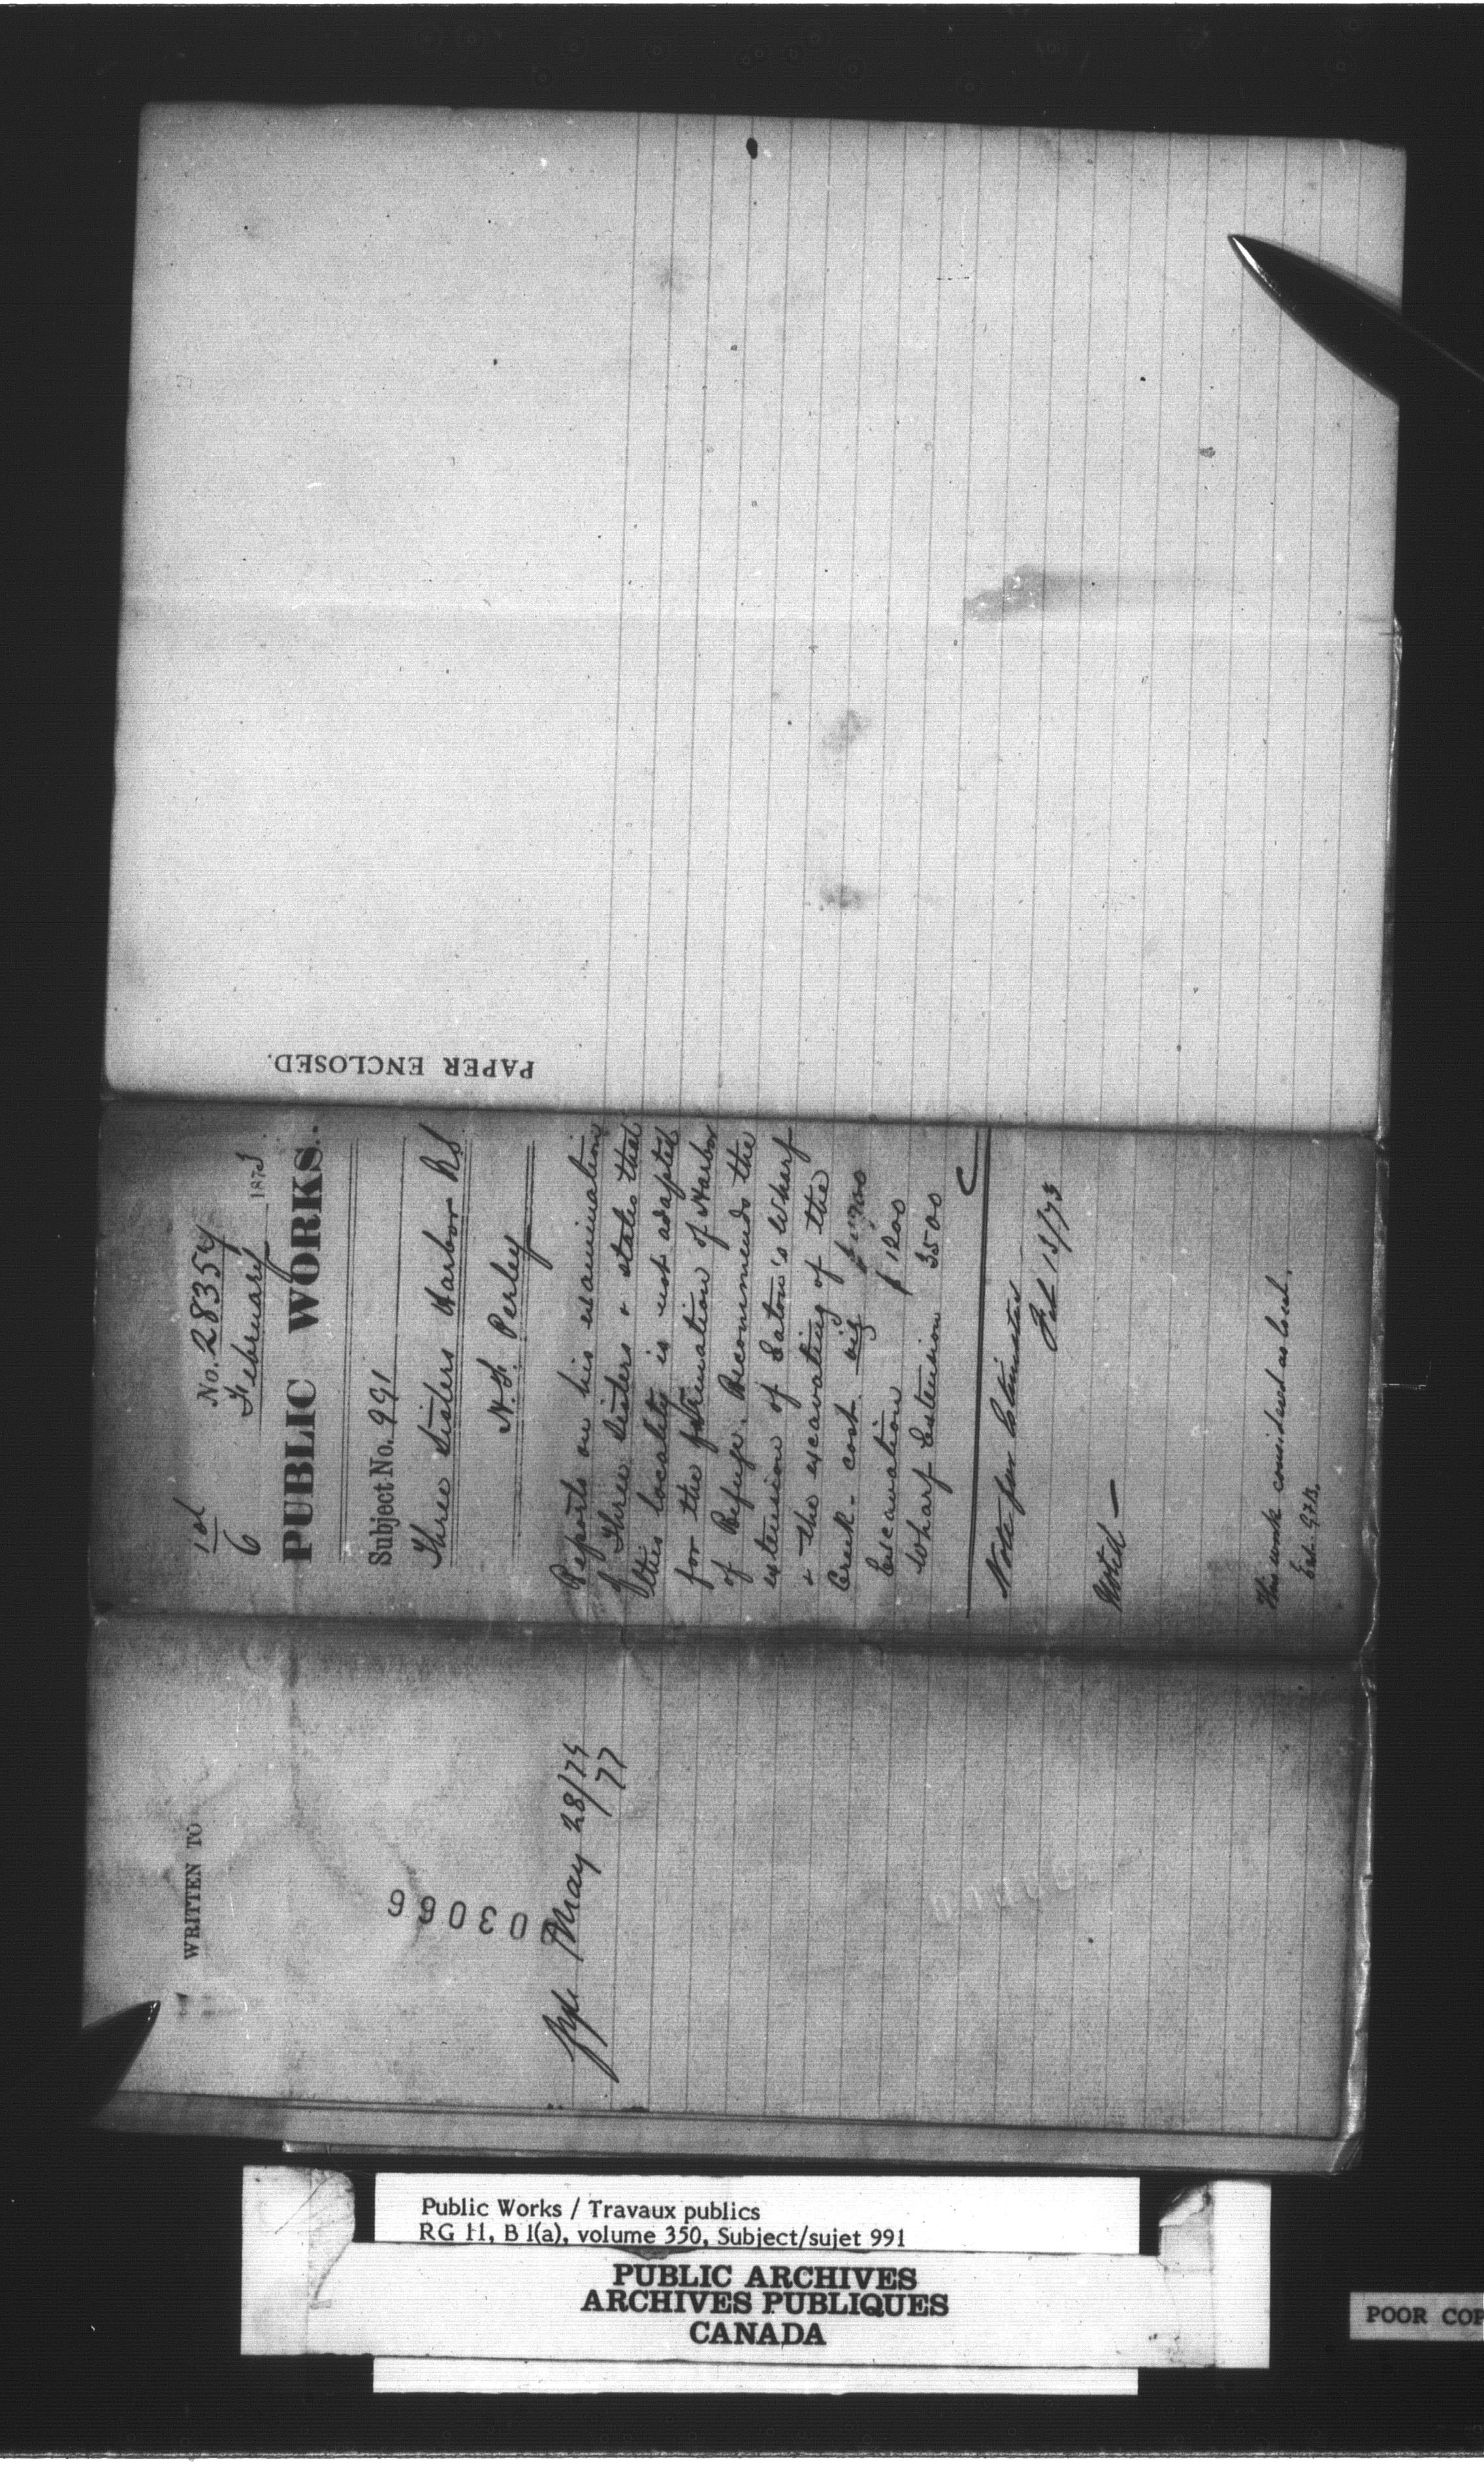 PAPER ENCLOSED.
1st
6
No. 28354
February 1873
PUBLIC WORKS.
Subject No. 991
Three Sisters Harbor NS
H. F. Perley
Reports on his examination
of Three Sisters & states that
this locality is not adapted
for the formation of Harbor
of Refuge. Recommends the
extension of Eaton's Wharf
& the excavating of the
Creek - cost. viz
Excavation $ 1200
Wharf Extension 3500
Note for Estimates
Feb 13/73
Noted —
This work considered as local.
WRITTEN TO
03066
May 28/74
77
Public Works / Travaux publics
RG 11, B 1(a), volume 350, Subject/sujet 991
PUBLIC ARCHIVES
ARCHIVES PUBLIQUES
CANADA
POOR COP